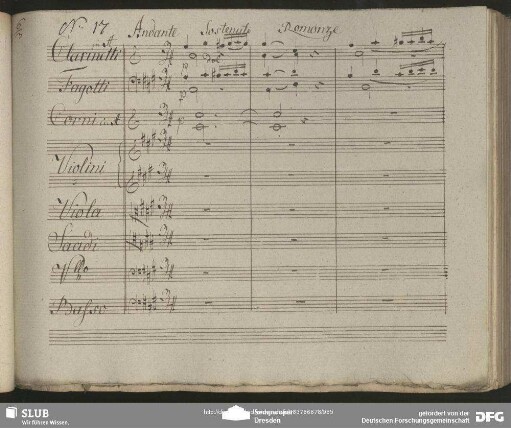 No 17 Andante Sostenuto Romanze
Clarinetti
dol
p
Fagotti
p
Corni in A
p
Violini
Viola
Basso
SLUB
Wir führen Wissen.
Dresden
gefördert von der
Deutschen Forschungsgemeinschaft
DFG